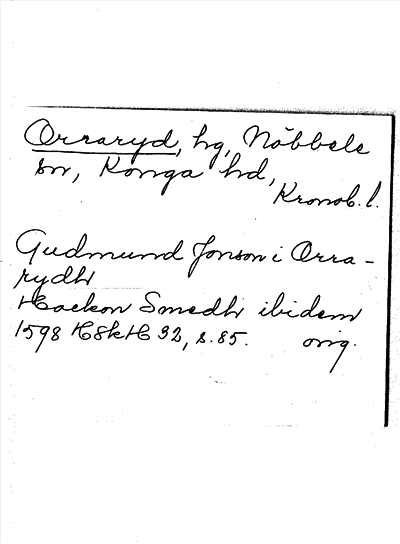 Orraryd, hg, Nöbbele
sn, Konga hd,
Kronob. l.
Gudmund Jonson i Orra-
rydh
Haekon Smedh ibidem
1598 HskH 32, s. 85. orig.